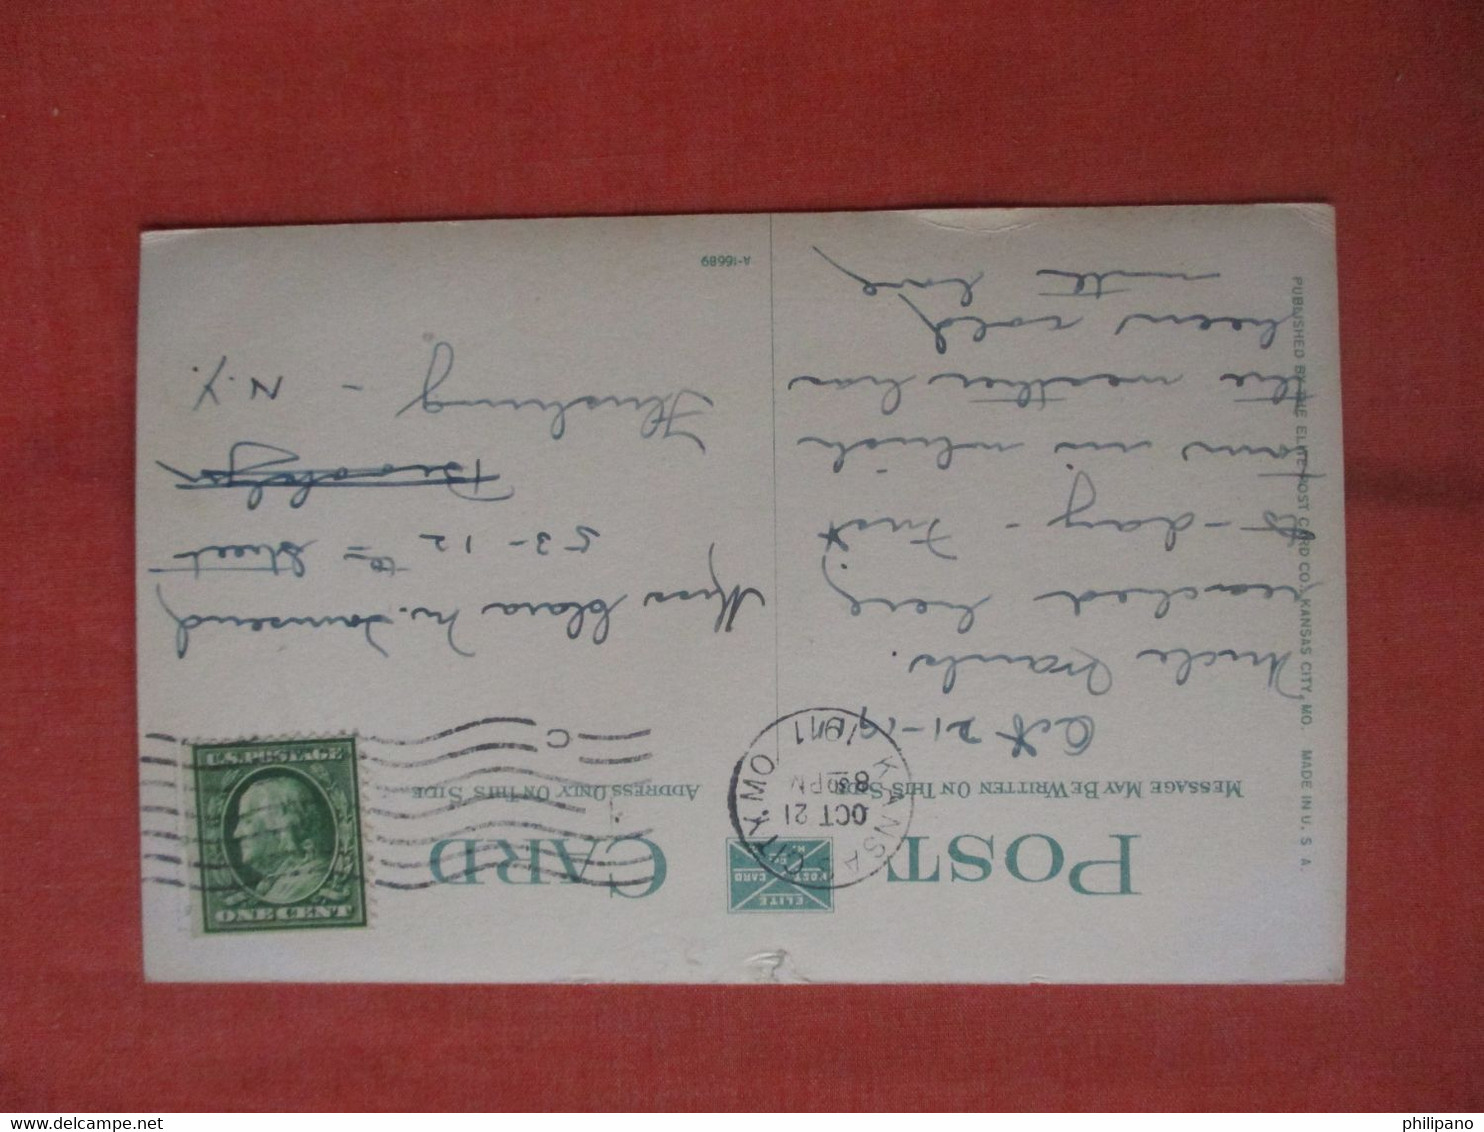 POST CARD
ELITE
POST CARD
CO.
K.C. MO.
MESSAGE MAY BE WRITTEN ON THIS SIDE
ADDRESS ONLY ON THIS SIDE
ONE CENT
U.S. POSTAGE
KANSAS CITY, MO.
OCT 21
8 30 PM
1911
C
Oct 21-1911
Uncle Frank.
reached here
to-day - First
town in which
the weather has
been cold
with love
Miss Clara M. Townsend
53-12th Street
Brooklyn
Flushing -
N.Y.
A-16689
PUBLISHED BY THE ELITE POST CARD CO., KANSAS CITY, MO. MADE IN U. S. A.
philipano